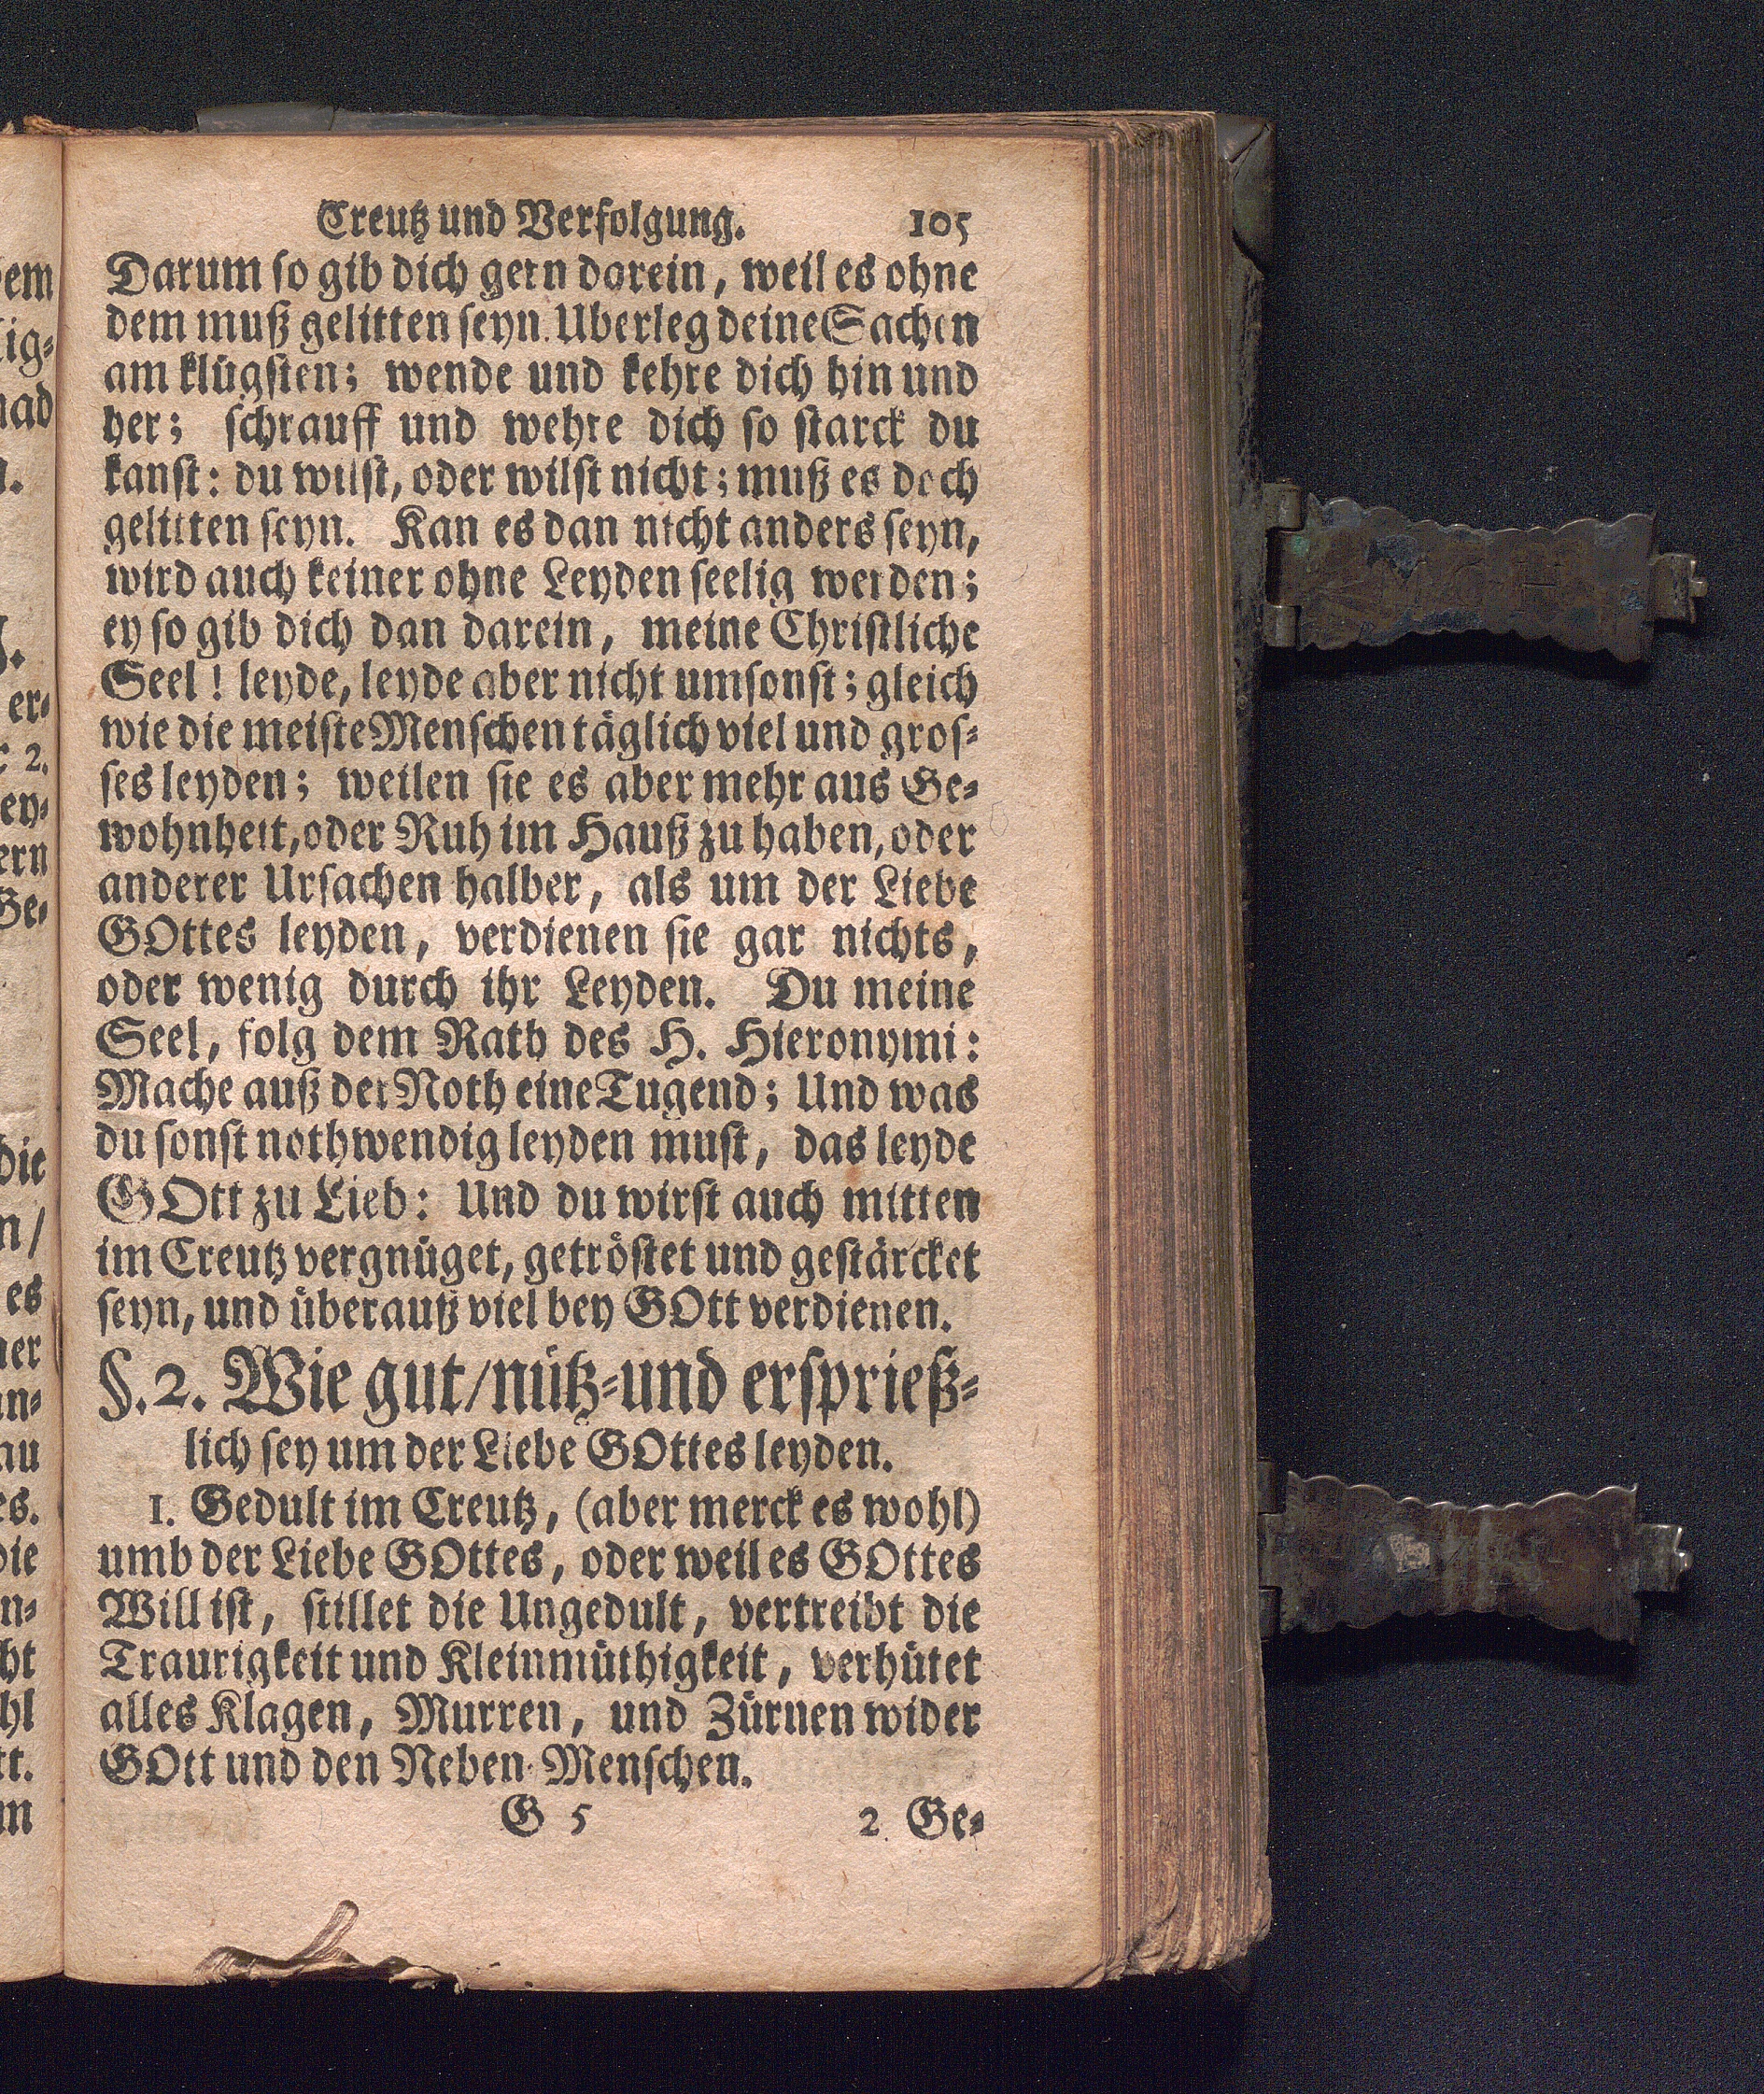 Creutz und Verfolgung. 105
Darum so gib dich gern darein, weil es ohne
dem muß gelitten seyn. Uberleg deine Sachen
am klügsten; wende und kehre dich hin und
her; schrauff und wehre dich so starck du
kanst: du wilst, oder wilst nicht; muß es doch
gelitten seyn. Kan es dan nicht anders seyn,
wird auch keiner ohne Leyden seelig werden;
ey so gib dich dan darein, meine Christliche
Seel! leyde, leyde aber nicht umsonst; gleich
wie die meiste Menschen täglich viel und gros-
ses leyden; weilen sie es aber mehr aus Ge-
wohnheit, oder Ruh im Hauß zu haben, oder
anderer Ursachen halber, als um der Liebe
GOttes leyden, verdienen sie gar nichts,
oder wenig durch ihr Leyden. Du meine
Seel, folg dem Rath des H. Hieronymi:
Mache auß der Noth eine Tugend; Und was
du sonst nothwendig leyden must, das leyde
GOtt zu Lieb: Und du wirst auch mitten
im Creutz vergnüget, getröstet und gestärcket
seyn, und überautz viel bey GOtt verdienen.
§. 2. Wie gut/nütz-und ersprieß-
lich sey um der Liebe GOttes leyden.
1. Gedult im Creutz, (aber merck es wohl)
umb der Liebe GOttes, oder weil es GOttes
Will ist, stillet die Ungedult, vertreibt die
Traurigkeit und Kleinmüthigkeit, verhütet
alles Klagen, Murren, und Zürnen wider
GOtt und den Neben-Menschen.
G 5 2. Ge-